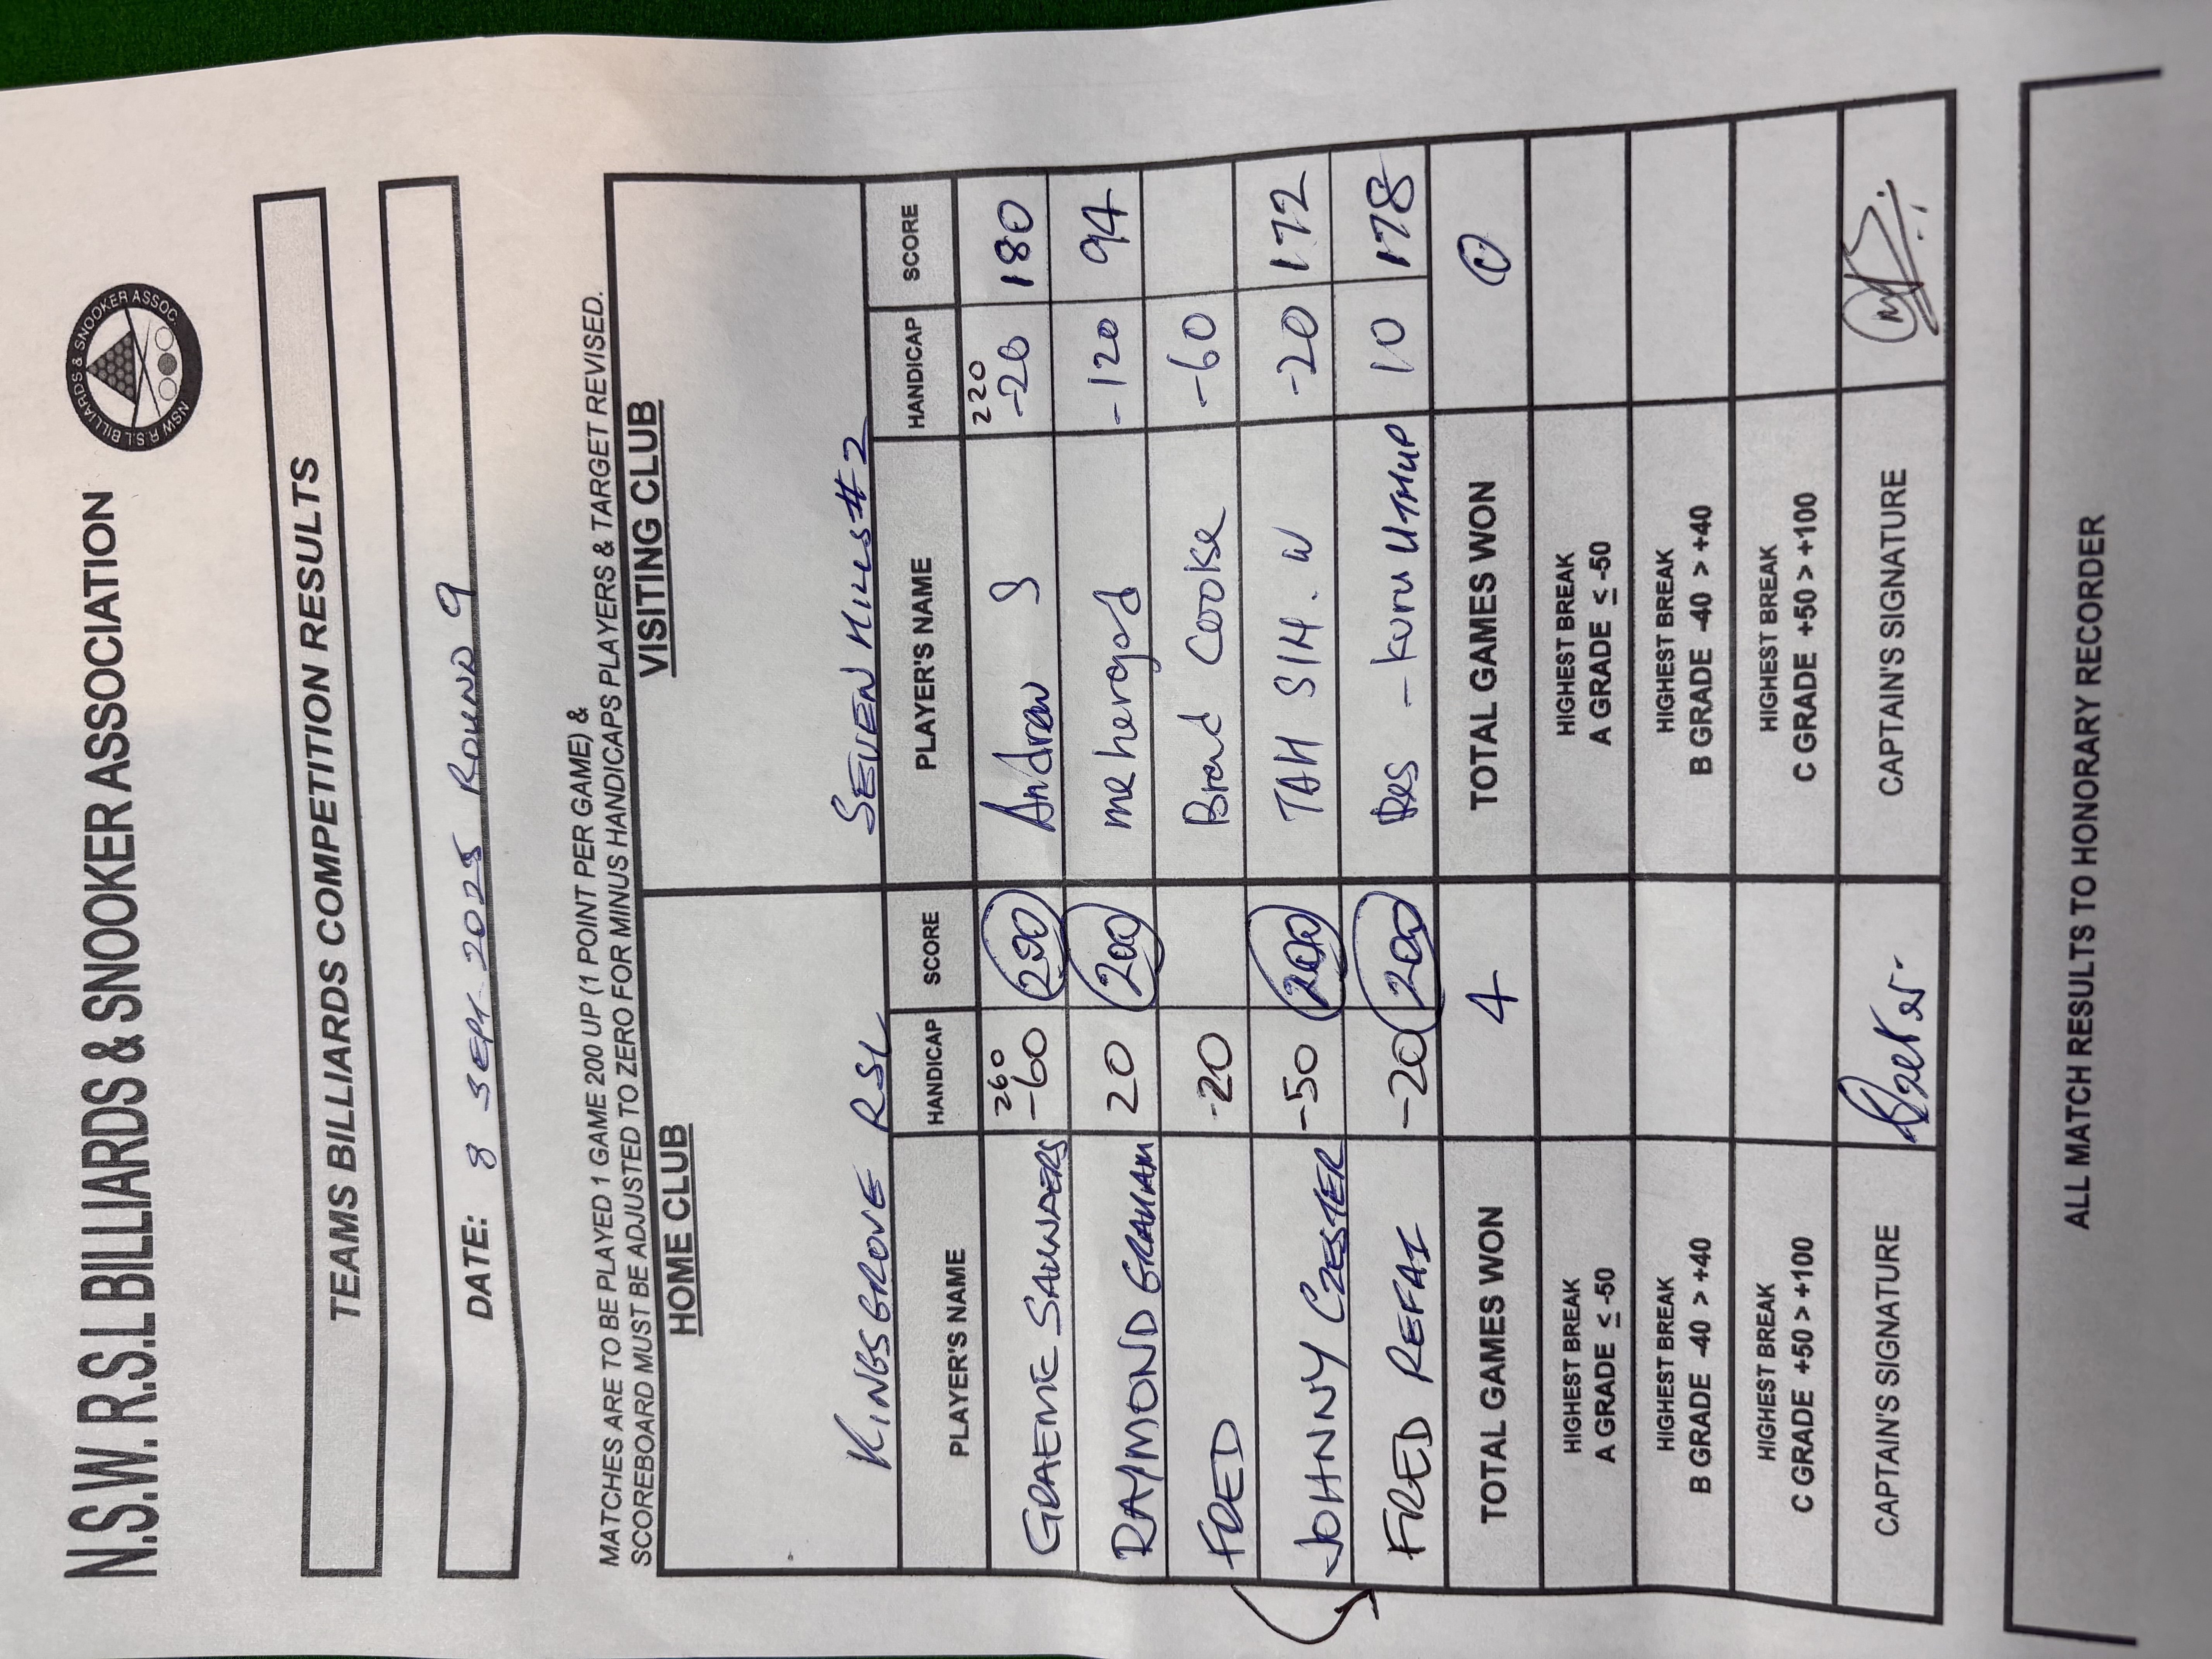 N.S.W. R.S.L BILLIARDS & SNOOKER ASSOCIATION
NSW R.S.L BILLIARDS & SNOOKER ASSOC
TEAMS BILLIARDS COMPETITION RESULTS
DATE: 8 SEPT 2025 ROUND 9
MATCHES ARE TO BE PLAYED 1 GAME 200 UP (1 POINT PER GAME) &
SCOREBOARD MUST BE ADJUSTED TO ZERO FOR MINUS HANDICAPS PLAYERS & TARGET REVISED.
HOME CLUB VISITING CLUB
KINGSGROVE RSL SEVEN HILLS #2
PLAYER'S NAME HANDICAP SCORE PLAYER'S NAME HANDICAP SCORE
260 220
GRAEME SAUNDERS -60 200 Andrew S -20 180
RAYMOND GRAHAM 20 200 mehergod -120 94
FRED -20 Brad Cooke -60
JOHNNY CZESTER -50 200 TAH SIM. W -20 172
FRED REFAI -20 200 Des - KURUUTHUP 10 178
TOTAL GAMES WON 4 TOTAL GAMES WON 0
HIGHEST BREAK HIGHEST BREAK
A GRADE ≤ -50 A GRADE ≤ -50
HIGHEST BREAK HIGHEST BREAK
B GRADE -40 > +40 B GRADE -40 > +40
HIGHEST BREAK HIGHEST BREAK
C GRADE +50 > +100 C GRADE +50 > +100
CAPTAIN'S SIGNATURE CAPTAIN'S SIGNATURE
ALL MATCH RESULTS TO HONORARY RECORDER